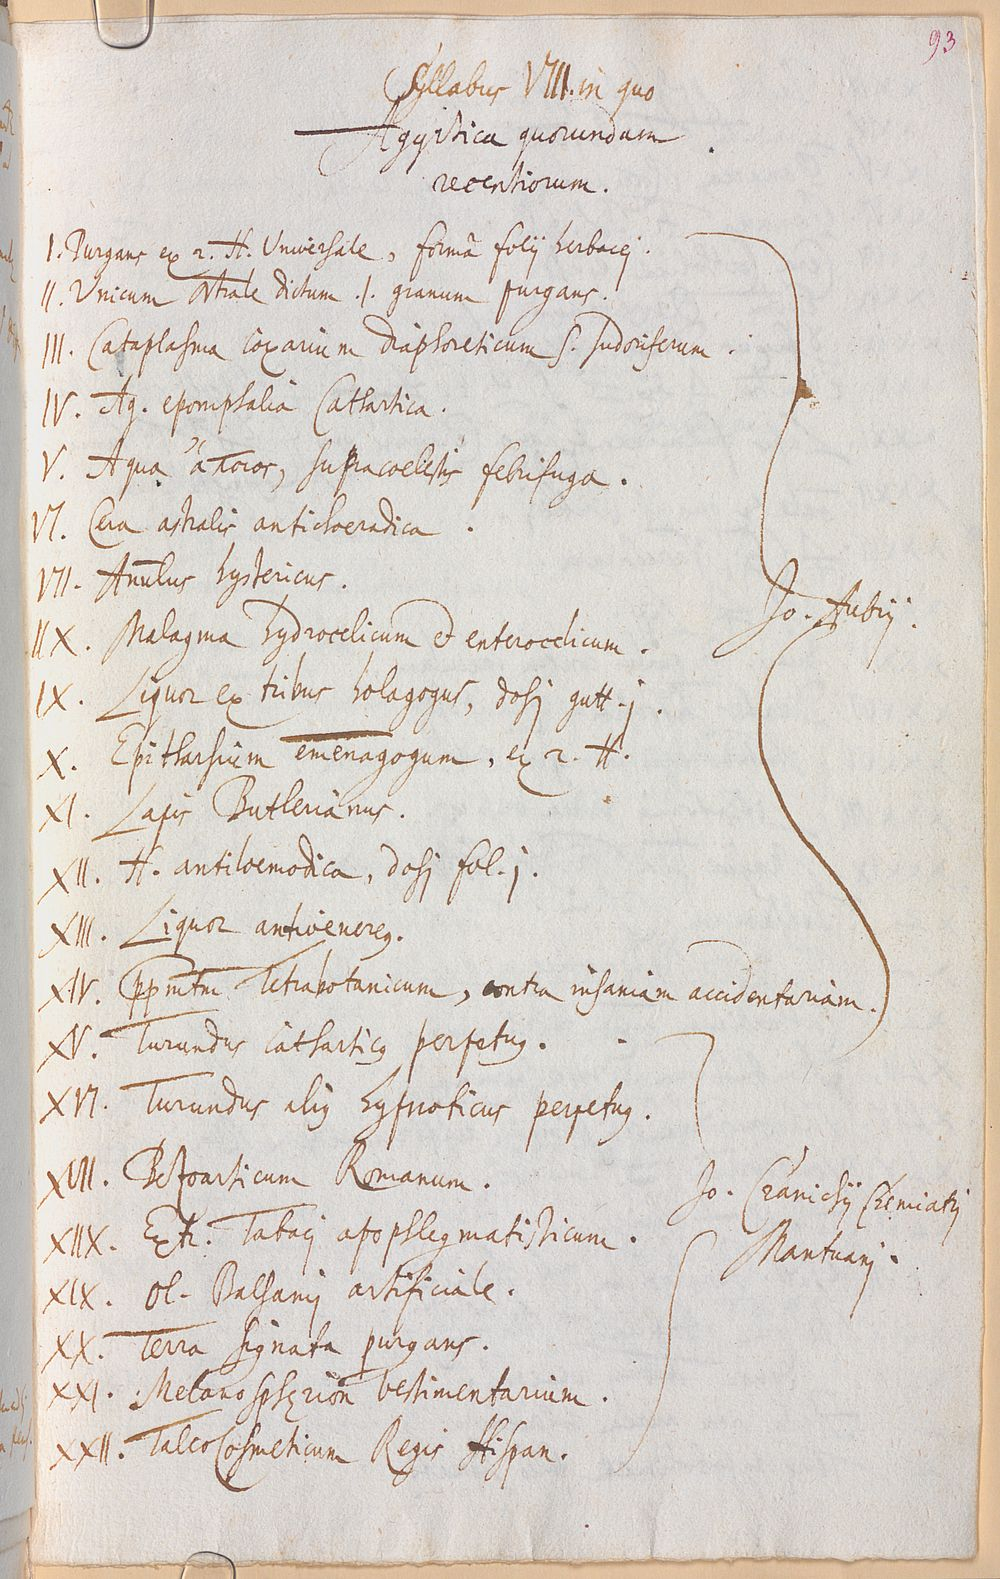 93
Syllabus VIII. in quo
Agyrtica quorundam
recentiorum.
I. Purgans ex 2. H. Universale, formâ folij herbacej.
II. Unicum Astrale dictum .1. granum purgans.
III. Cataplasma coxarium diaphoreticum s. sudoriferum.
IV. Aq. epomphalia Cathartica.
V. Aqua ἄποτος, supracoelestis febrifuga.
VI. Cera astralis antichoeradica.
VII. Annulus hystericus.
IIX. Malagma hydrocelicum et enterocelicum.
IX. Liquor ex tribus holagogus, dosj gutt. j.
X. Epitharsium emenagogum, ex 2. H.
XI. Lapis Butlerianus.
XII. H. antiloemodica, dosj fol. j.
XIII. Liquor antivenereꝰ.
XIV. Tetrabotanicum, contra insaniam accidentariam.
Jo. Aubrij.
XV. Turundus catharticꝰ perpetuꝰ.
XVI. Turundus aliꝰ hypnoticus perpetuꝰ.
XVII. Bezoarticum Romanum.
XIIX. Extr. Tabacj apophlegmatisticum.
XIX. Ol. Balsamj artificiale.
XX. Terra signata purgans.
XXI. Melanosphærion vestimentarium.
XXII. TalcoCosmeticum Regis Hispan.
Jo. Chemiatrj
Mantuanj.